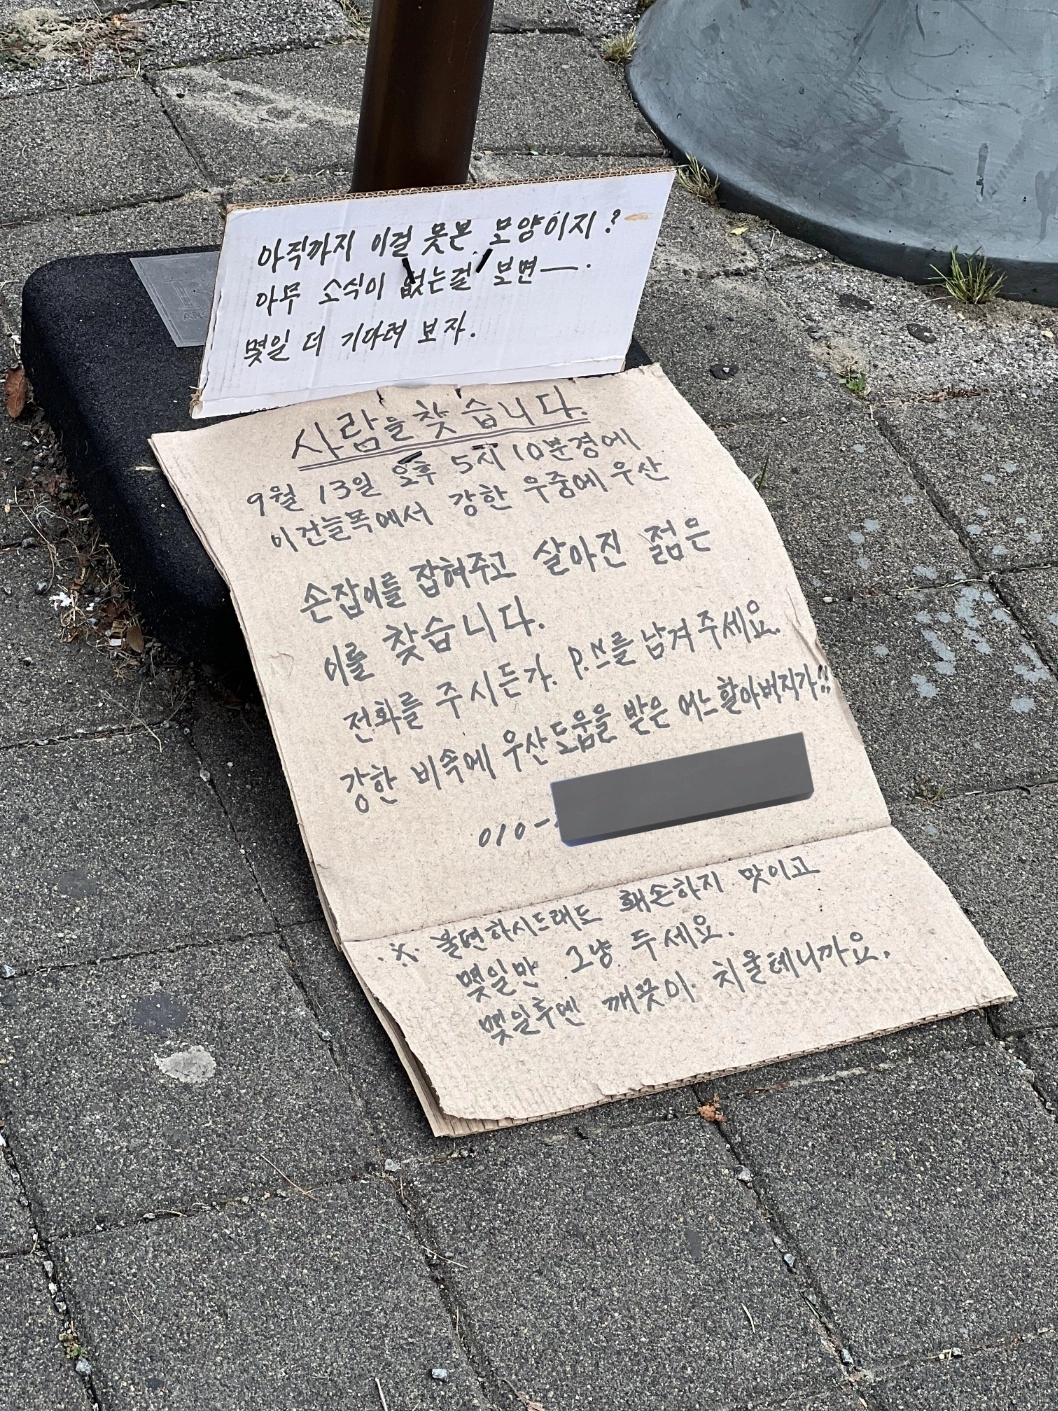 아직까지 이걸 못본 모양이지?
아무 소식이 없는걸 보면—.
몇일 더 기다려 보자.
사람을 찾습니다.
9월 13일 오후 5시 10분경에
이건늘목에서 강한 우중에 우산
손잡이를 잡혀주고 살아진 젊은
이를 찾습니다.
전화를 주시든가. P.S를 남겨 주세요.
강한 비속에 우산도움을 받은 어느할아버지가!!
010-
※ 불면하시드래도 훼손하지 맛이고
몇일만 그냥 두세요.
몇일후엔 깨끗이 치울테니까요.